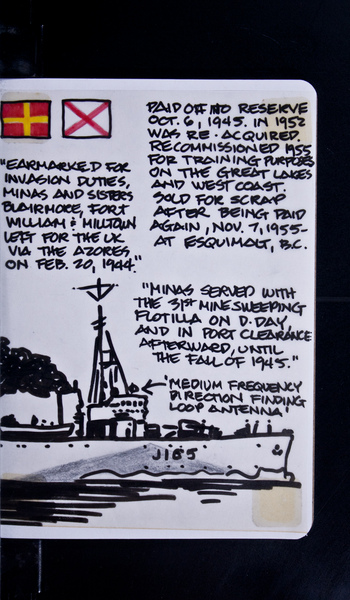 PAID OFF INTO RESERVE
OCT. 6, 1945. IN 1952
WAS RE-ACQUIRED.
RECOMMISSIONED 1955
FOR TRAINING PURPOSES
ON THE GREAT LAKES
AND WEST COAST.
SOLD FOR SCRAP
AFTER BEING PAID
AGAIN, NOV. 7, 1955-
AT ESQUIMALT, B.C.
"EARMARKED FOR
INVASION DUTIES,
MINAS AND SISTERS
BLAIRMORE, FORT
WILLIAM & MILLTOWN
LEFT FOR THE UK
VIA THE AZORES
ON FEB. 20, 1944."
"MINAS SERVED WITH
THE 31ST MINESWEEPING
FLOTILLA ON D-DAY,
AND IN PORT CLEARANCE
AFTERWARD, UNTIL
THE FALL OF 1945."
'MEDIUM FREQUENCY
DIRECTION FINDING
LOOP ANTENNA'
J165